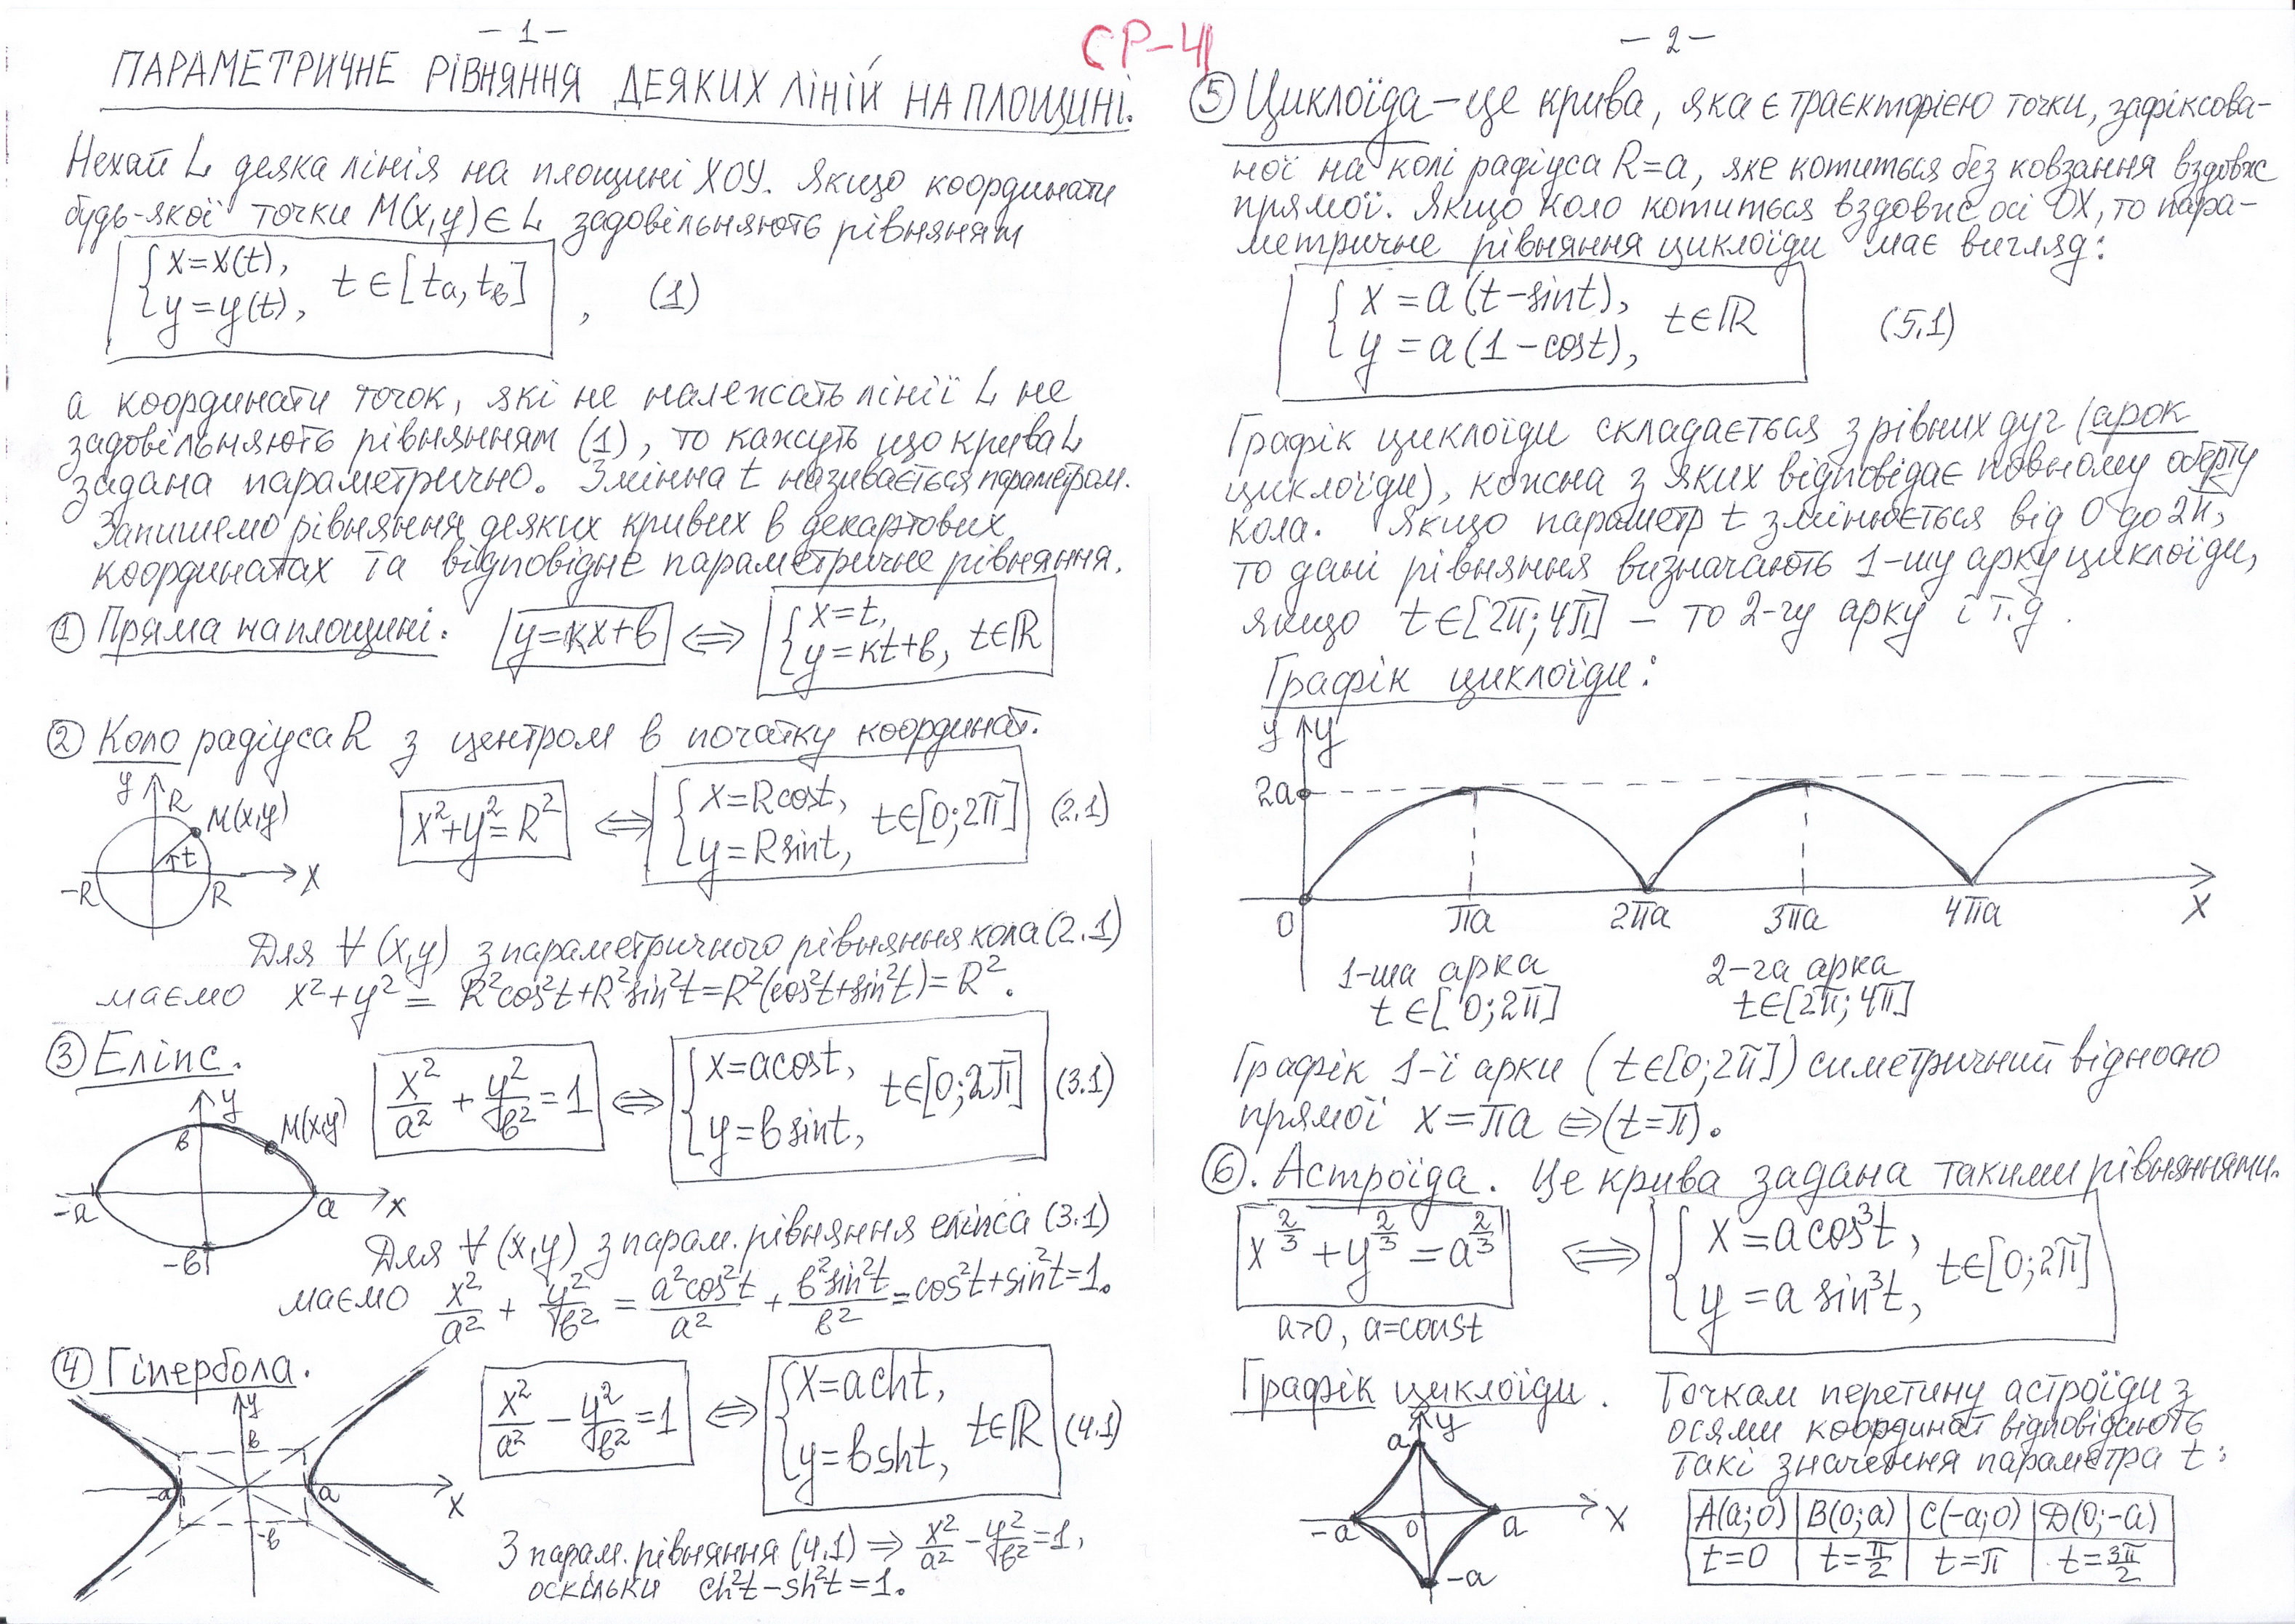 - 1 -
ПАРАМЕТРИЧНЕ РІВНЯННЯ ДЕЯКИХ ЛІНІЙ НА ПЛОЩИНІ.
Нехай L деяка лінія на площині XOY. Якщо координати
будь-якої точки M(x,y) ∈ L задовільняють рівнянням
{ x=x(t),
{ y=y(t), t ∈ [ta, tв] , (1)
а координати точок, які не належать лінії L не
задовільняють рівнянням (1), то кажуть що крива L
задана параметрично. Змінна t називається параметром.
Запишемо рівняння деяких кривих в декартових
координатах та відповідне параметричне рівняння.
① Пряма на площині. y=kx+в ⇔ { x=t,
{ y=kt+в, t∈ℝ
② Коло радіуса R з центром в початку координат.
y R M(x,y) t -R R X
x²+y²=R² ⇔ { x=Rcost,
{ y=Rsint, t∈[0;2π] (2.1)
Для ∀ (x,y) з параметричного рівняння кола (2.1)
маємо x²+y² = R²cos²t+R²sin²t=R²(cos²t+sin²t)=R².
③ Еліпс.
y M(x,y) в -a a x -в
x²/a² + y²/в² = 1 ⇔ { x=acost,
{ y=вsint, t∈[0;2π] (3.1)
Для ∀ (x,y) з парам. рівняння еліпса (3.1)
маємо x²/a² + y²/в² = a²cos²t/a² + в²sin²t/в² = cos²t+sin²t=1.
④ Гіпербола.
y в -a a x -в
x²/a² - y²/в² = 1 ⇔ { x=acht,
{ y=вsht, t∈ℝ (4.1)
З парам. рівняння (4.1) ⇒ x²/a² - y²/в² = 1,
оскільки ch²t-sh²t=1.
СР-4
- 2 -
⑤ Циклоїда – це крива, яка є траєкторією точки, зафіксова-
ної на колі радіуса R=a, яке котиться без ковзання вздовж
прямої. Якщо коло котиться вздовж осі OX, то пара-
метричне рівняння циклоїди має вигляд:
{ x = a(t-sint),
{ y = a(1-cost), t∈ℝ (5.1)
Графік циклоїди складається з рівних дуг (арок
циклоїди), кожна з яких відповідає повному оберту
кола. Якщо параметр t змінюється від 0 до 2π,
то дані рівняння визначають 1-шу арку циклоїди,
якщо t∈[2π; 4π] – то 2-гу арку і т.д.
Графік циклоїди:
y y
2a
0 πa 2πa 3πa 4πa X
1-ша арка 2-га арка
t∈[0;2π] t∈[2π; 4π]
Графік 1-ї арки (t∈[0;2π]) симетричний відносно
прямої x=πa ⇔ (t=π).
⑥. Астроїда. Це крива задана такими рівняннями.
x^(2/3) + y^(2/3) = a^(2/3) ⇔ { x = a cos³t,
{ y = a sin³t, t∈[0;2π]
a>0, a=const
Графік циклоїди.
a y -a 0 a X -a
Точкам перетину астроїди з
осями координат відповідають
такі значення параметра t:
A(a;0) B(0;a) C(-a;0) D(0;-a)
t=0 t=π/2 t=π t=3π/2